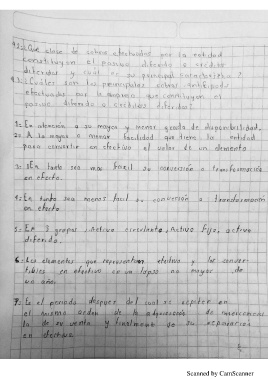 42:- Qué clase de cobros efectuados por la entidad
constituyen el pasivo diferido o crédito
diferido y cual es su principal característica?
43:- Cuales son los principales cobros anticipados
efectuados por la empresa que constituyen el
pasivo diferido o créditos diferidos?
1:- En atención a su mayor y menor grado de disponibilidad.
2:- A la mayor o menor facilidad que tiene la entidad
para convertir en efectivo el valor de un elemento
3:- En tanto sea mas facil su conversión o transformación
en efecto.
4:- En tanto sea menos facil su conversión o transformación
en efecto.
5:- En 3 grupos: Activo circulante, Activo fijo, activo
diferido.
6:- Los elementos que representan efectivo y los conver-
tibles en efectivo en un lapso no mayor de
un año.
7:- Es el periodo despues del cual se repiten en
el mismo orden de la adquisición de mercancias
la de su venta y finalmente de su recuperación
en efectivo.
Scanned by CamScanner